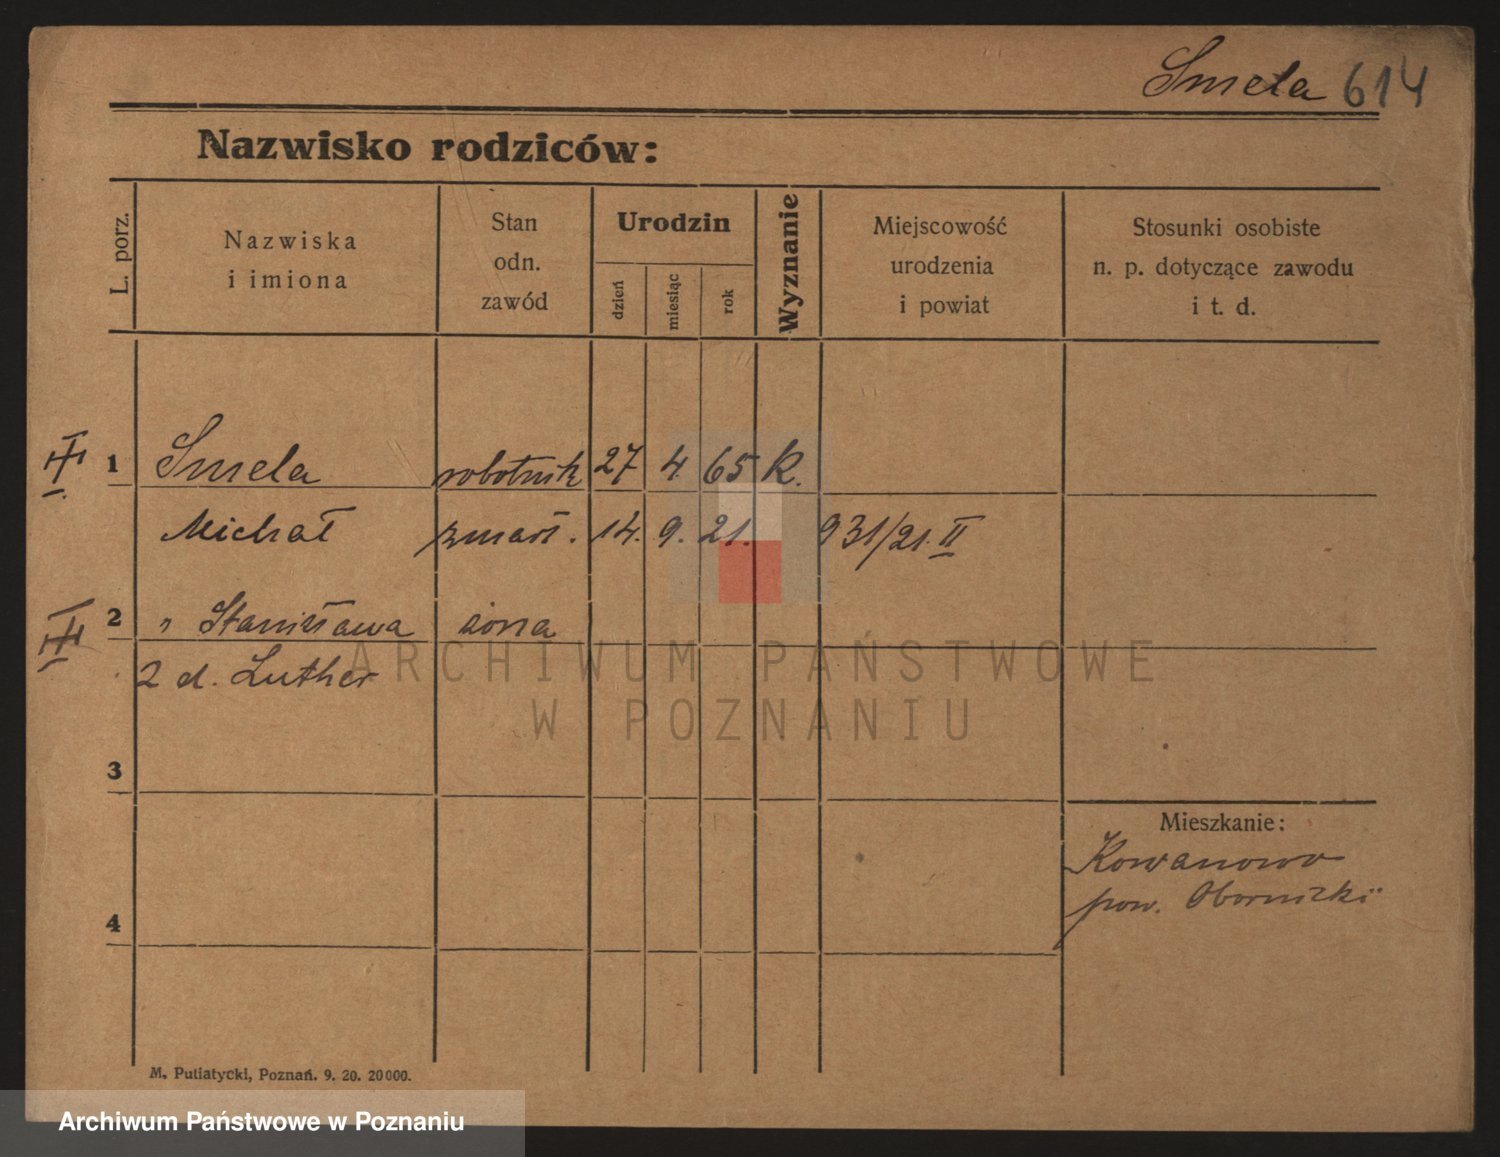 Smela 614
Nazwisko rodziców:
L. porz.
Nazwiska
i imiona
Stan
odn.
zawód
Urodzin
dzień
miesiąc
rok
Wyznanie
Miejscowość
urodzenia
i powiat
Stosunki osobiste
n. p. dotyczące zawodu
i t. d.
1 Smela robotnik 27 4 65 k.
Michał zmarł. 14. 9. 21. 931/21. II
2 " Stanisława żona
2 d. Luther
3
Mieszkanie:
Kowanowo
pow. Obornicki
4
M. Putiatycki, Poznań. 9. 20. 20000.
ARCHIWUM PAŃSTWOWE
W POZNANIU
Archiwum Państwowe w Poznaniu